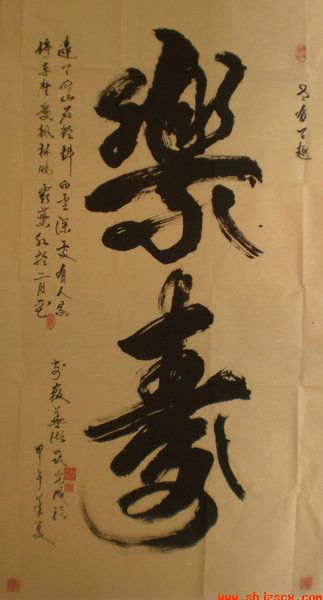 樂壽
遠上寒山石徑斜白雲深處有人家
停車坐愛楓林晚霜葉紅於二月花
安徽蕪湖
甲午